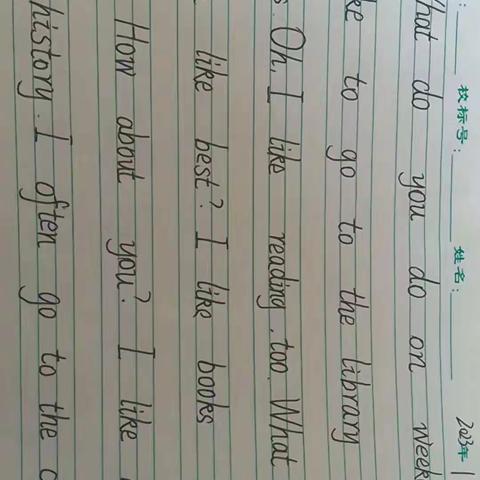 校标号： 姓名： 2023年
What do you do on week
ke to go to the library
s. Oh, I like reading, too. What
like best? I like books
How about you? I like
history. I often go to the c